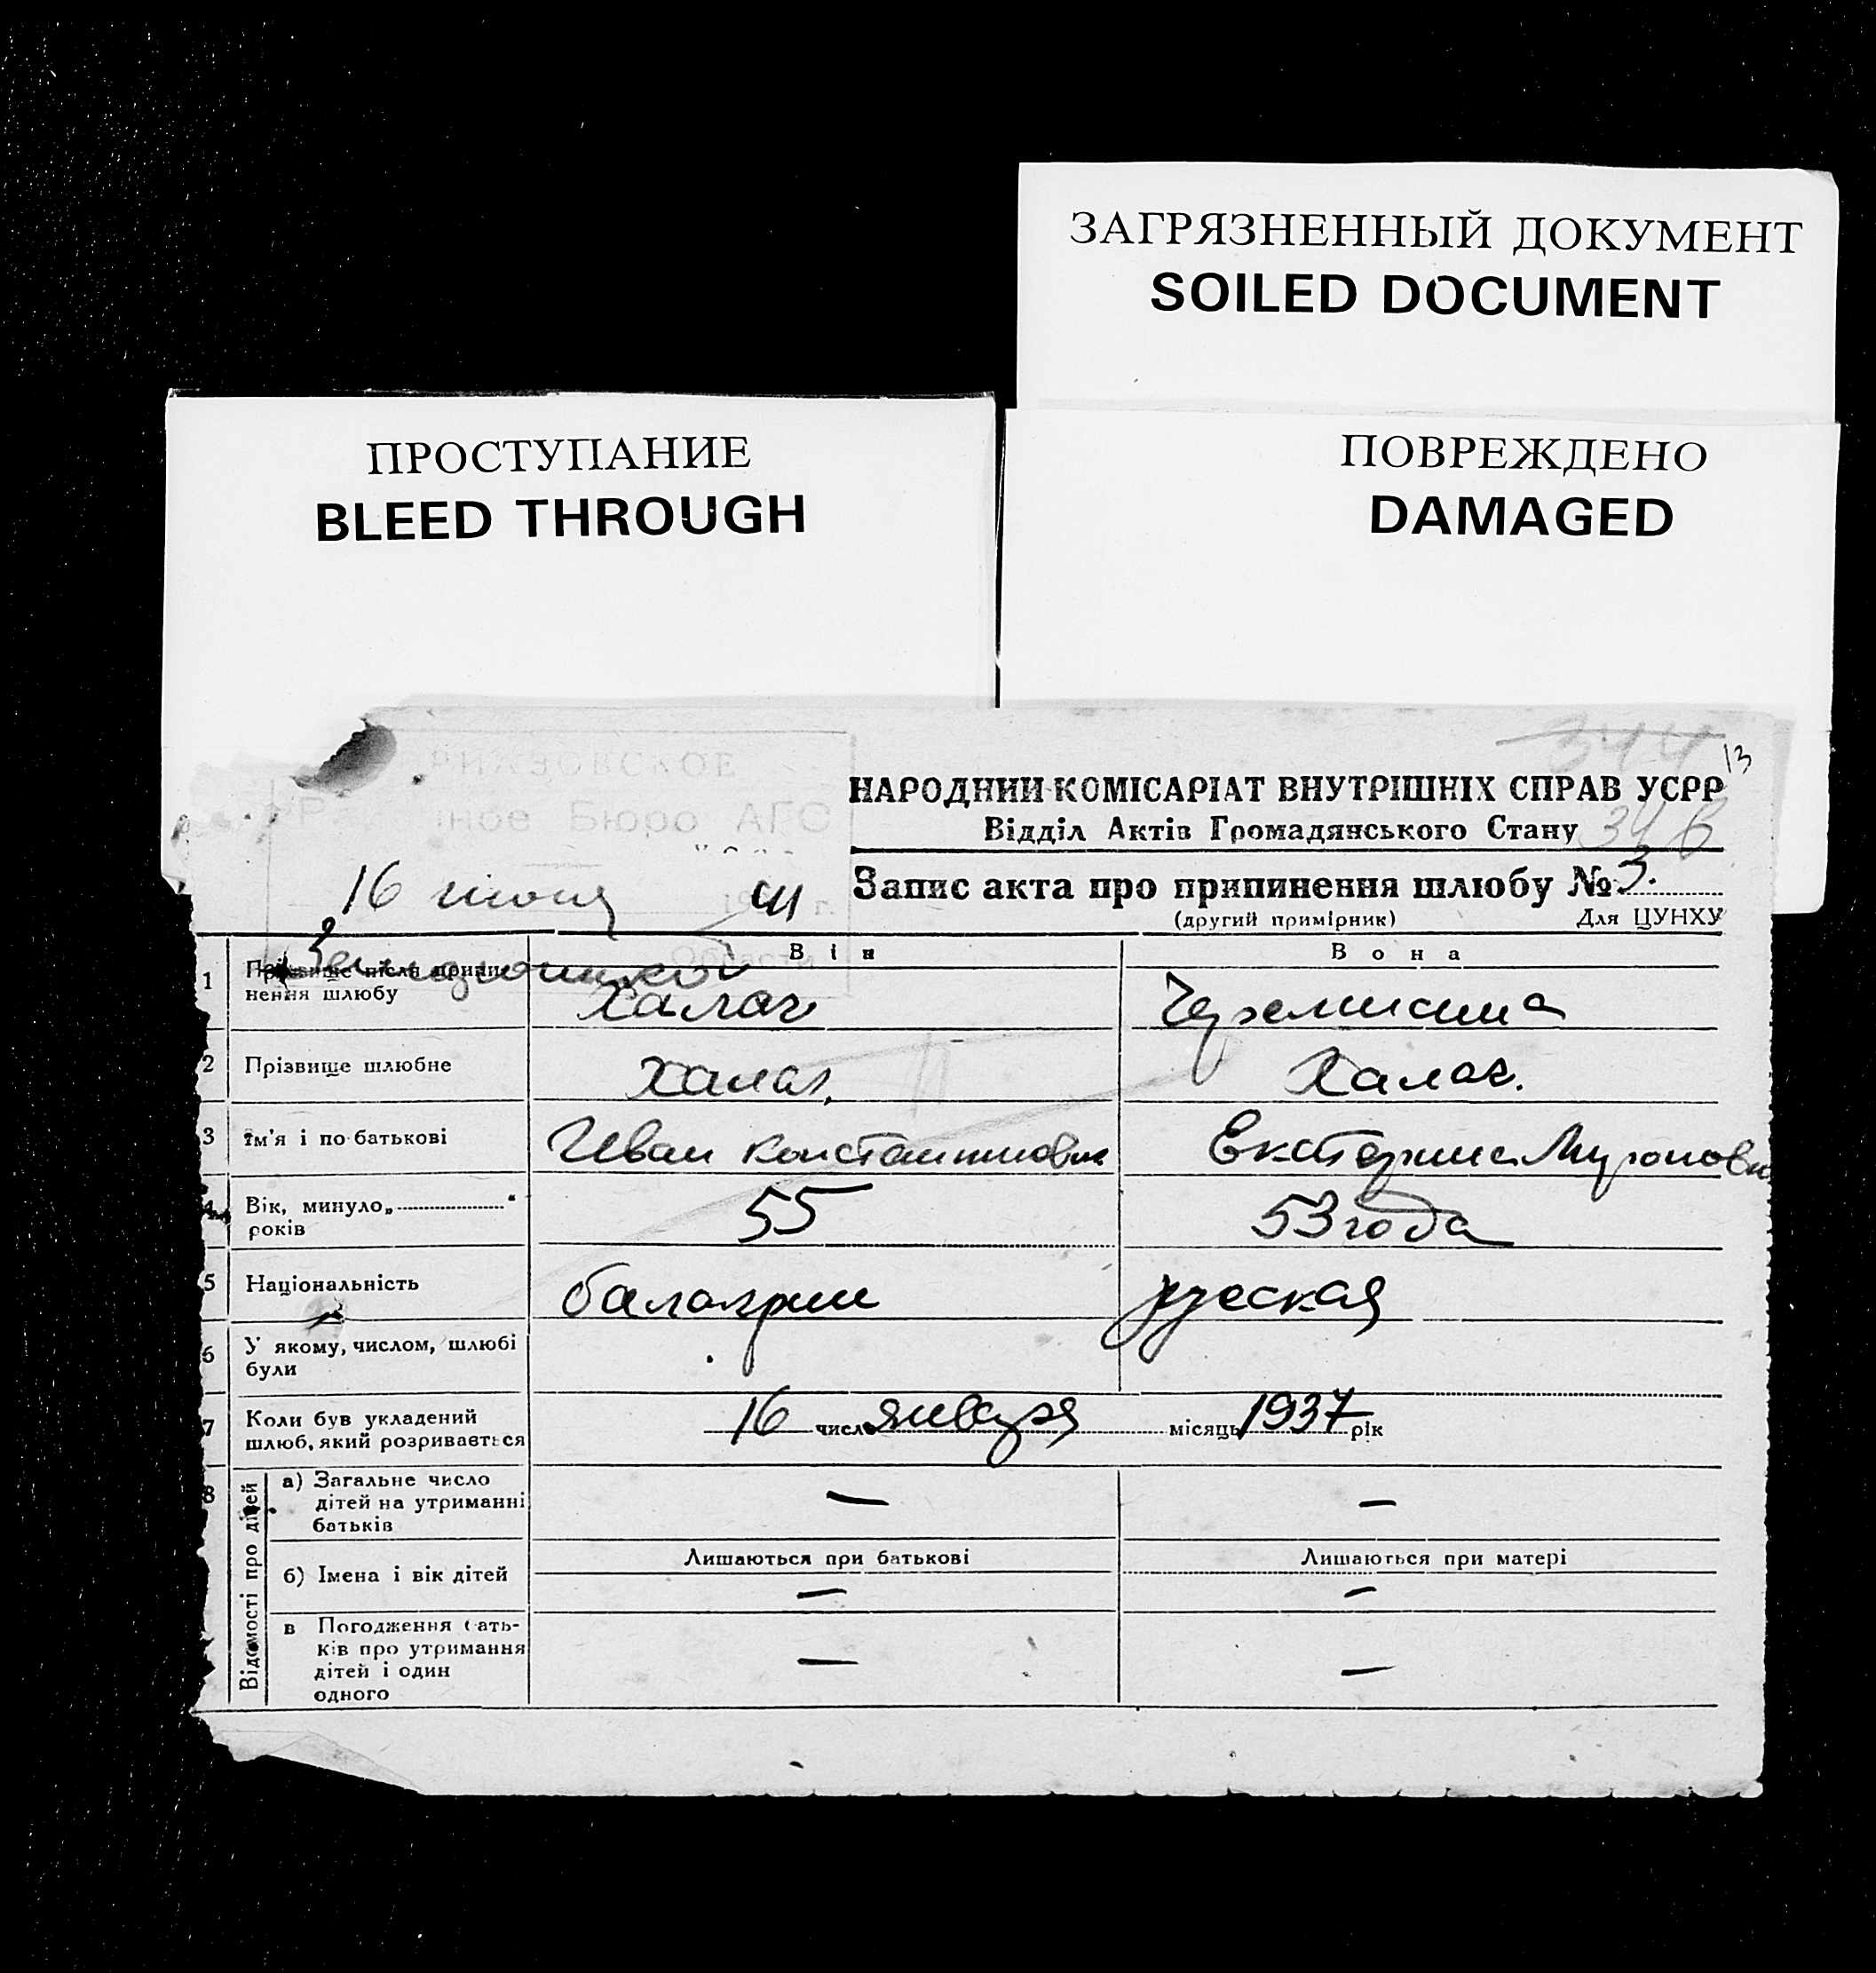 ЗАГРЯЗНЕННЫЙ ДОКУМЕНТ
SOILED DOCUMENT
ПРОСТУПАНИЕ
BLEED THROUGH
ПОВРЕЖДЕНО
DAMAGED
344
13
НАРОДНИЙ КОМІСАРІАТ ВНУТРІШНІХ СПРАВ УСРР
Відділ Актів Громадянського Стану
Бюро АГС
16 июня 41 г.
Запис акта про припинення шлюбу № 3.
(другий примірник) Для ЦУНХУ
Він Вона
1 Прізвище після припинення шлюбу Халач Черемисина
2 Прізвище шлюбне Халач. Халач.
3 Ім'я і по батькові Иван Константинович Екатерина Мироновна
4 Вік, минуло „ “ років 55 53 года
5 Національність русская
6 У якому, числом, шлюбі були
7 Коли був укладений шлюб, який розривається 16 числ января місяць 1937 рік
8 Відомості про дітей
а) Загальне число дітей на утриманні батьків — —
Лишаються при батькові Лишаються при матері
б) Імена і вік дітей — —
в Погодження батьків про утримання дітей і один одного — —